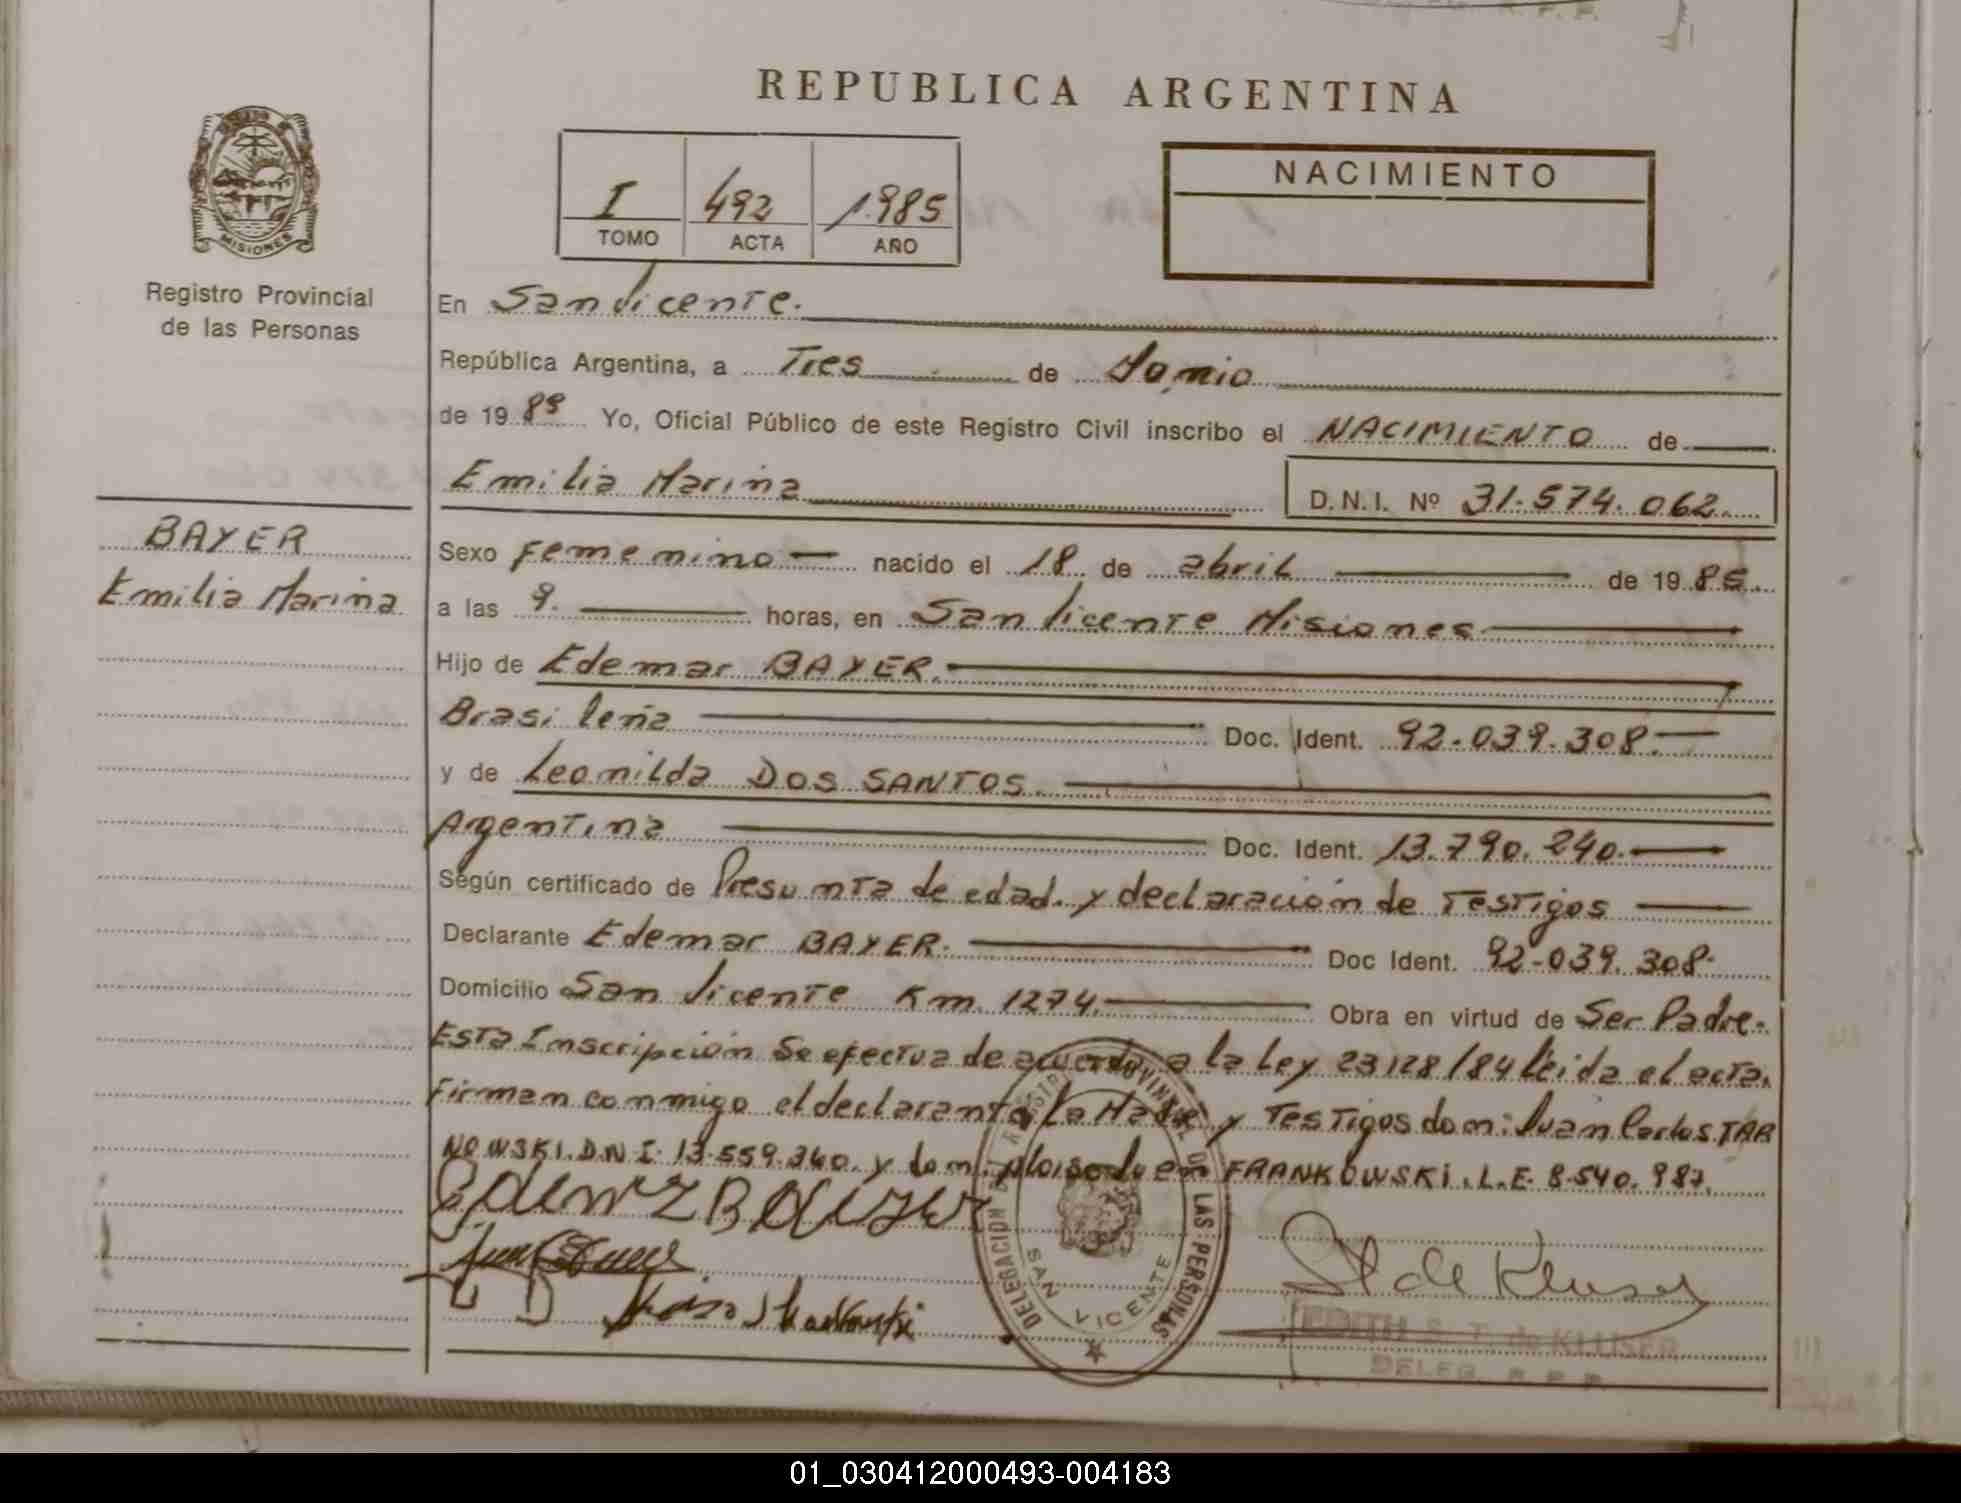 REPUBLICA ARGENTINA
MISIONES
Registro Provincial
de las Personas
I 492 1985
TOMO ACTA AÑO
NACIMIENTO
En San Vicente.
República Argentina, a Tres de Junio
de 1985 Yo, Oficial Público de este Registro Civil inscribo el NACIMIENTO de
Emilia Marina D.N.I. Nº 31.574.062.
BAYER
Emilia Marina
Sexo Femenino nacido el 18 de abril de 1985.
a las 9. horas, en San Vicente Misiones
Hijo de Edemar BAYER.
Brasileña Doc. Ident. 92.039.308.
y de Leonilda DOS SANTOS.
Argentina Doc. Ident. 13.790.240.
Según certificado de Presunta de edad. y declaración de Testigos
Declarante Edemar BAYER. Doc Ident. 92-039.308.
Domicilio San Vicente Km. 1274. Obra en virtud de Ser Padre.
Esta Inscripción se efectua de acuerdo a la Ley 23128/84 leida el acta.
Firman conmigo el declarante La Madre y Testigos don: Juan Carlos TAR
NOWSKI. D.N.I. 13.559.340. y don FRANKOWSKI. L.E. 8.540.987.
DELEGACION DEL REGISTRO PROVINCIAL DE LAS PERSONAS
SAN VICENTE
St de Kluser
EDITH S. T. de KLUSER
DELEG. R. P. P.
01_030412000493-004183